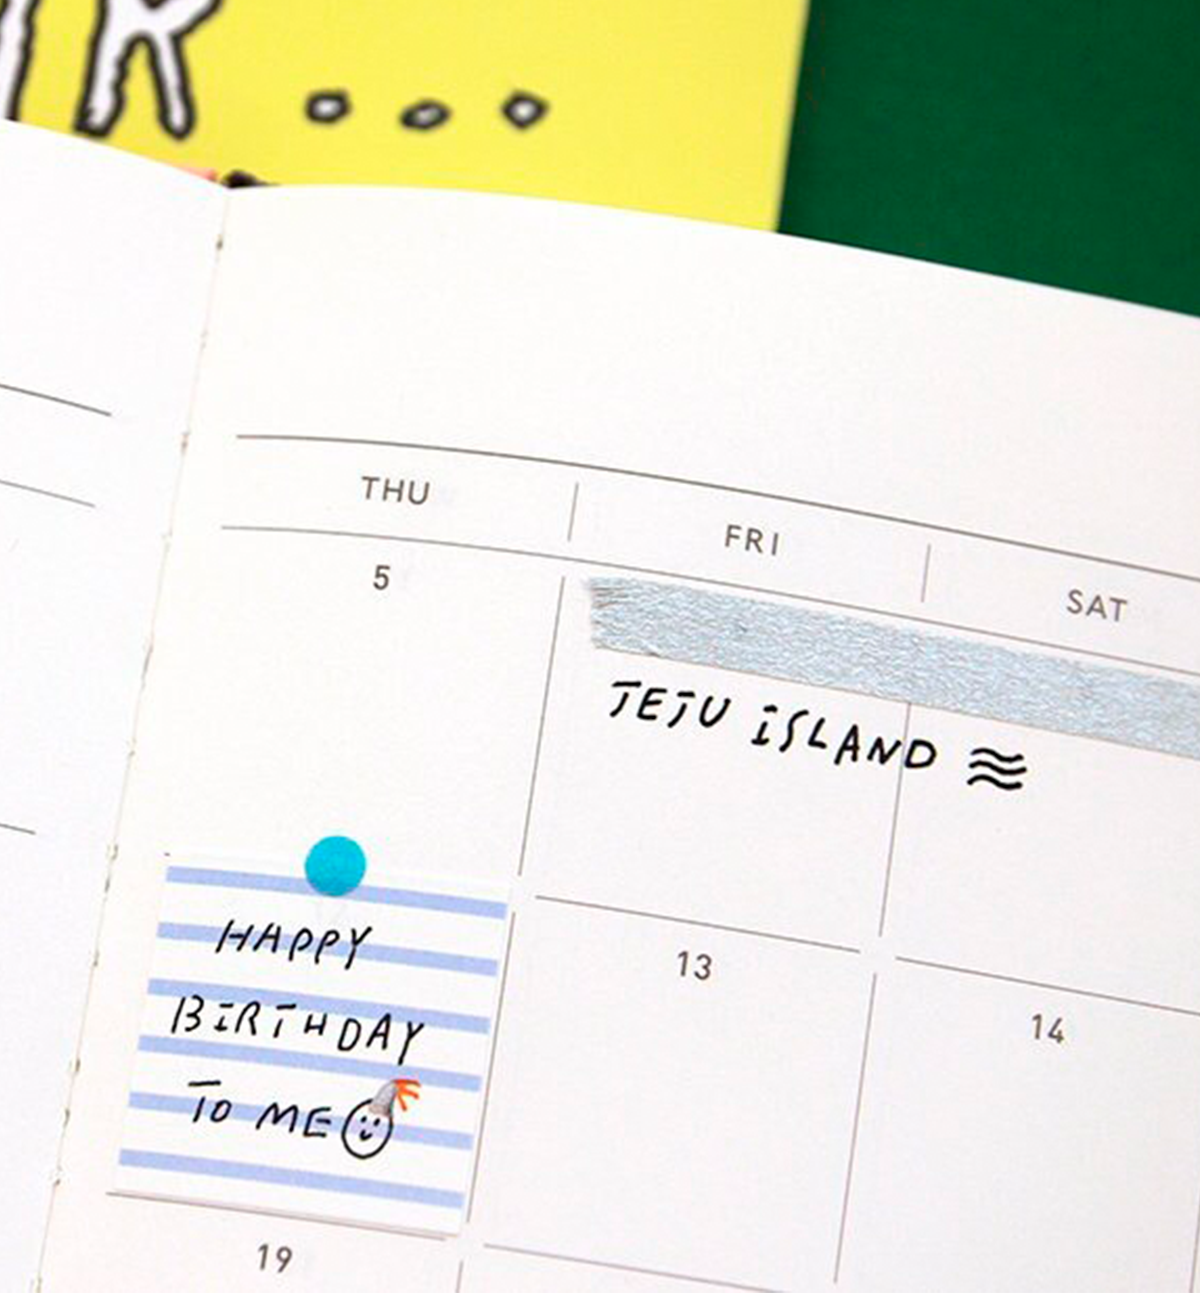 THU
FRI
SAT
5
JEJU ISLAND
13
14
HAPPY
BIRTHDAY
TO ME
19